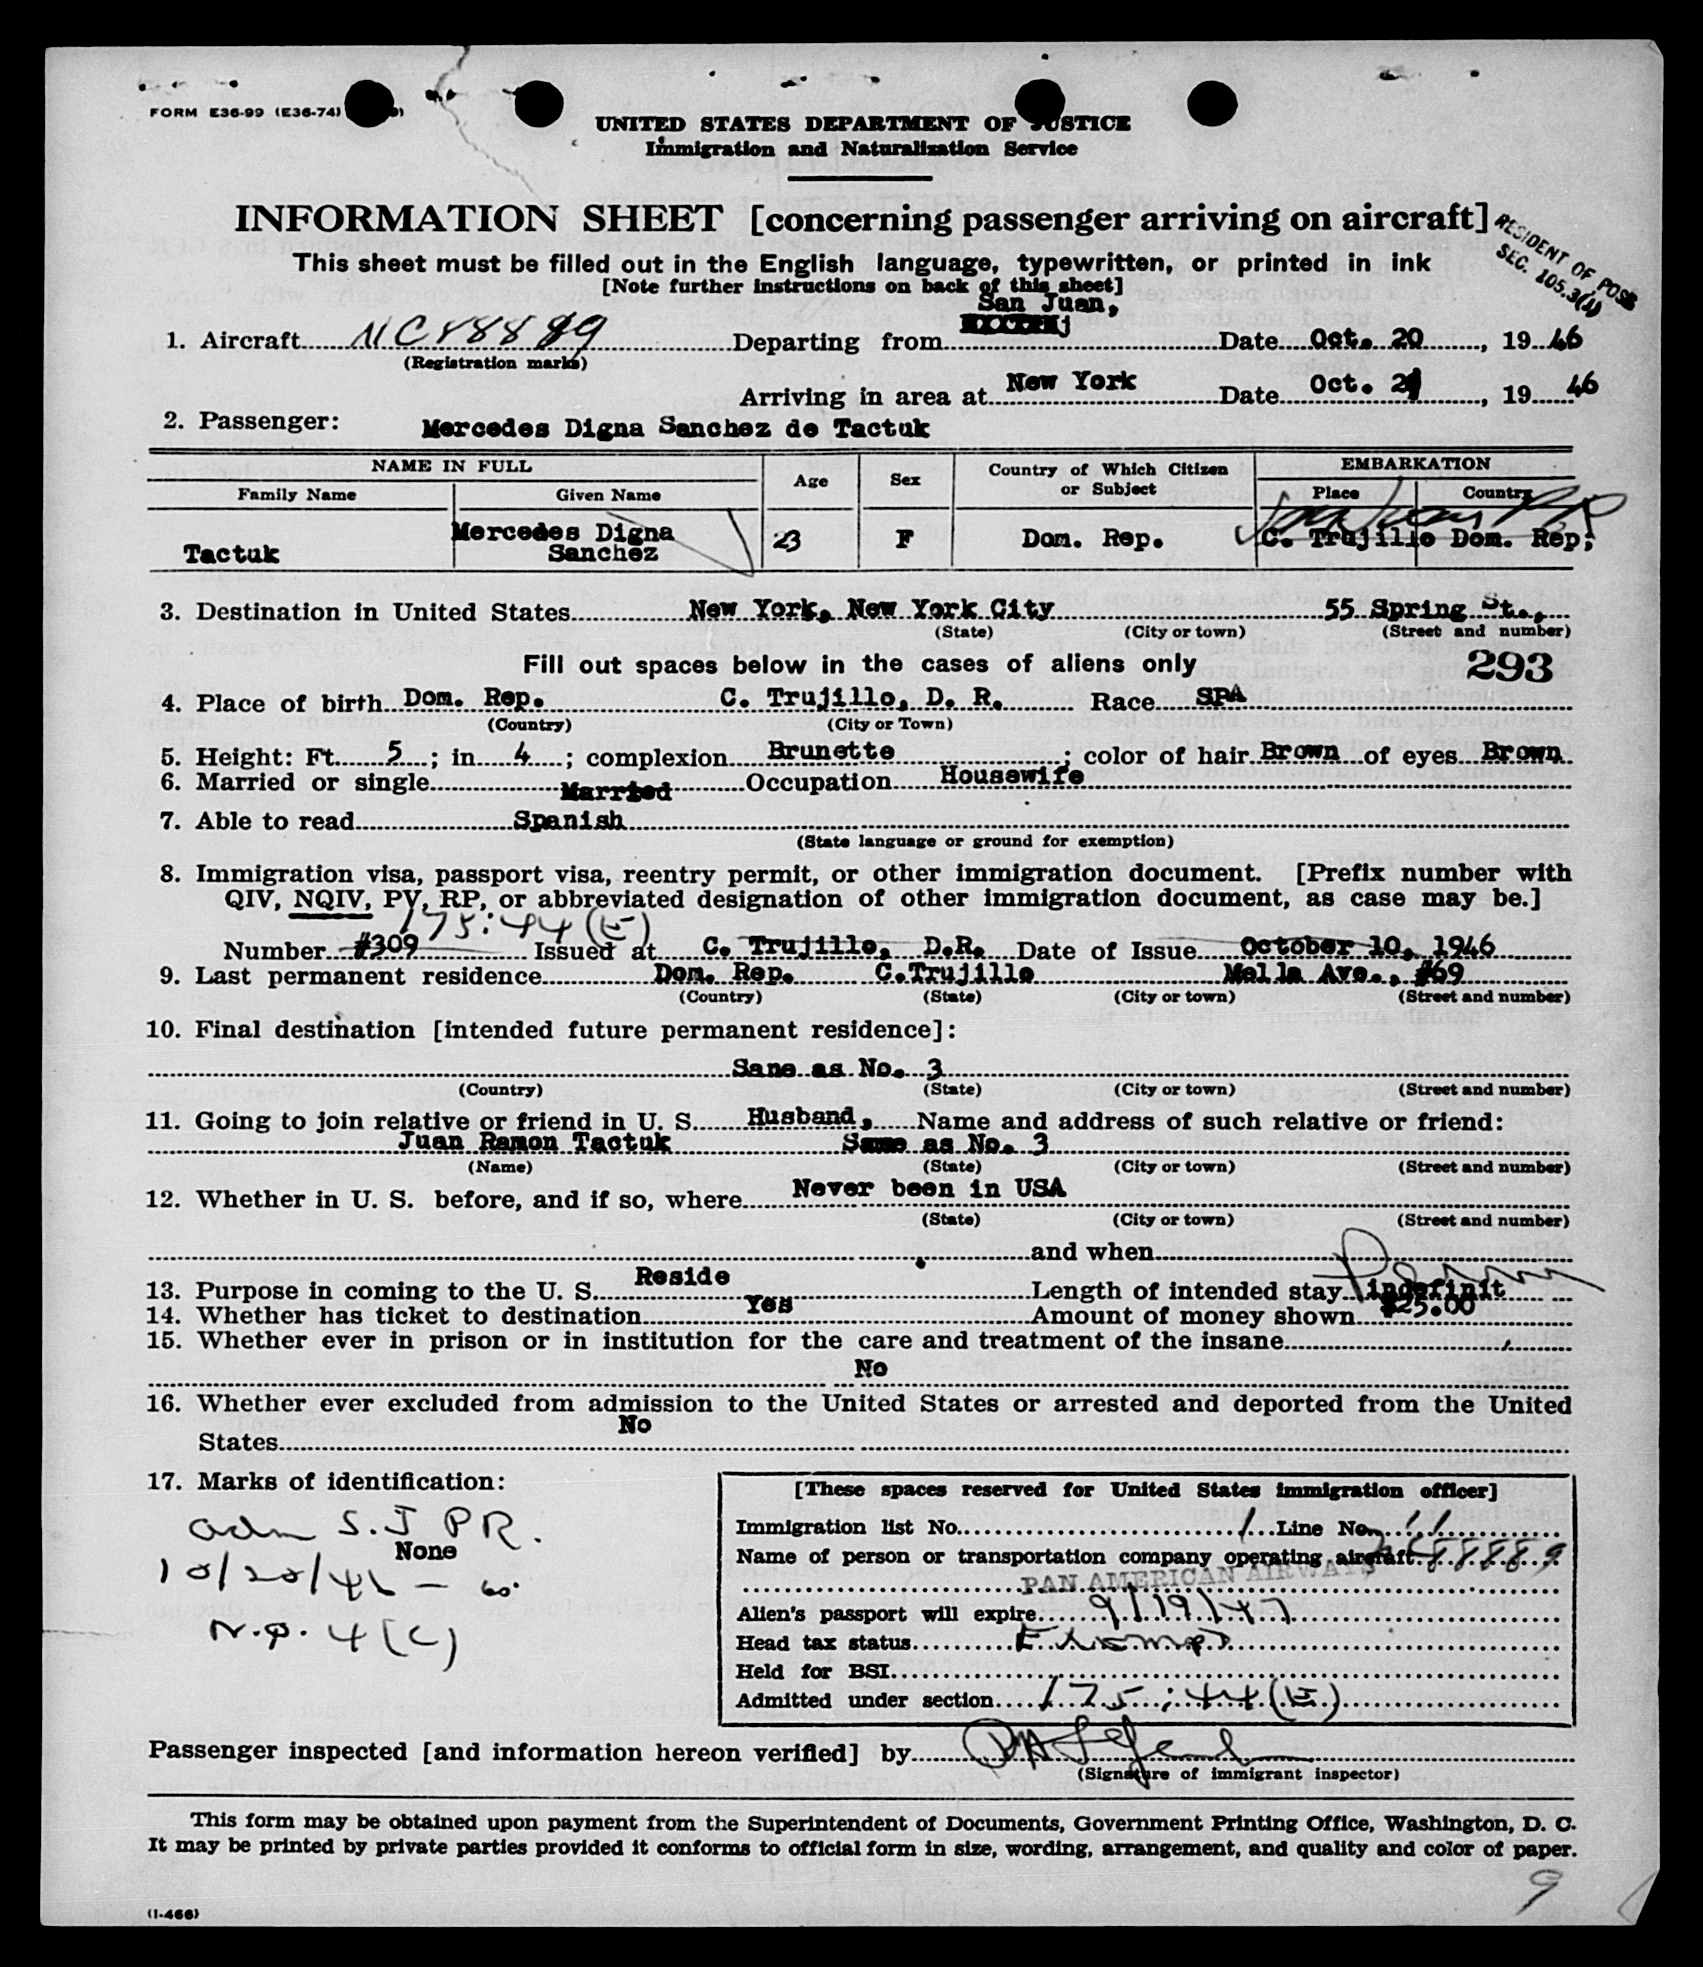 FORM E36-99 (E36-74)
UNITED STATES DEPARTMENT OF JUSTICE
Immigration and Naturalization Service
INFORMATION SHEET [concerning passenger arriving on aircraft]
RESIDENT OF POSS
SEC. 105.3(4)
This sheet must be filled out in the English language, typewritten, or printed in ink
[Note further instructions on back of this sheet]
San Juan,
1. Aircraft NC88889 Departing from Date Oct. 20, 1946
(Registration marks)
Arriving in area at New York Date Oct. 21, 1946
2. Passenger: Mercedes Digna Sanchez de Tactuk
NAME IN FULL Age Sex Country of Which Citizen or Subject EMBARKATION
Family Name Given Name Place Country
San Juan PR
Tactuk Mercedes Digna Sanchez 23 F Dom. Rep. C. Trujillo Dom. Rep.
3. Destination in United States New York, New York City 55 Spring St.,
(State) (City or town) (Street and number)
Fill out spaces below in the cases of aliens only 293
4. Place of birth Dom. Rep. C. Trujillo, D. R. Race SPA
(Country) (City or Town)
5. Height: Ft. 5; in 4; complexion Brunette; color of hair Brown of eyes Brown
6. Married or single Married Occupation Housewife
7. Able to read Spanish
(State language or ground for exemption)
8. Immigration visa, passport visa, reentry permit, or other immigration document. [Prefix number with
QIV, NQIV, PV, RP, or abbreviated designation of other immigration document, as case may be.]
175:44(E)
Number #309 Issued at C. Trujillo, D.R. Date of Issue October 10, 1946
9. Last permanent residence Dom. Rep. C.Trujillo Mella Ave., #69
(Country) (State) (City or town) (Street and number)
10. Final destination [intended future permanent residence]:
Sane as No. 3
(Country) (State) (City or town) (Street and number)
11. Going to join relative or friend in U. S. Husband, Name and address of such relative or friend:
Juan Ramon Tactuk Same as No. 3
(Name) (State) (City or town) (Street and number)
12. Whether in U. S. before, and if so, where Never been in USA
(State) (City or town) (Street and number)
and when
13. Purpose in coming to the U. S. Reside Length of intended stay indefinit
14. Whether has ticket to destination Yes Amount of money shown $25.00
15. Whether ever in prison or in institution for the care and treatment of the insane
No
16. Whether ever excluded from admission to the United States or arrested and deported from the United
States No
17. Marks of identification:
adm S.J PR.
None
10/20/46 - 60.
N.P. 4(C)
[These spaces reserved for United States immigration officer]
Immigration list No. 1 Line No. 11
Name of person or transportation company operating aircraft 88889
PAN AMERICAN AIRWAYS
Alien's passport will expire 9/19/47
Head tax status
Held for BSI
Admitted under section 175:44(E)
Passenger inspected [and information hereon verified] by
(Signature of immigrant inspector)
This form may be obtained upon payment from the Superintendent of Documents, Government Printing Office, Washington, D. C.
It may be printed by private parties provided it conforms to official form in size, wording, arrangement, and quality and color of paper.
9
(I-466)